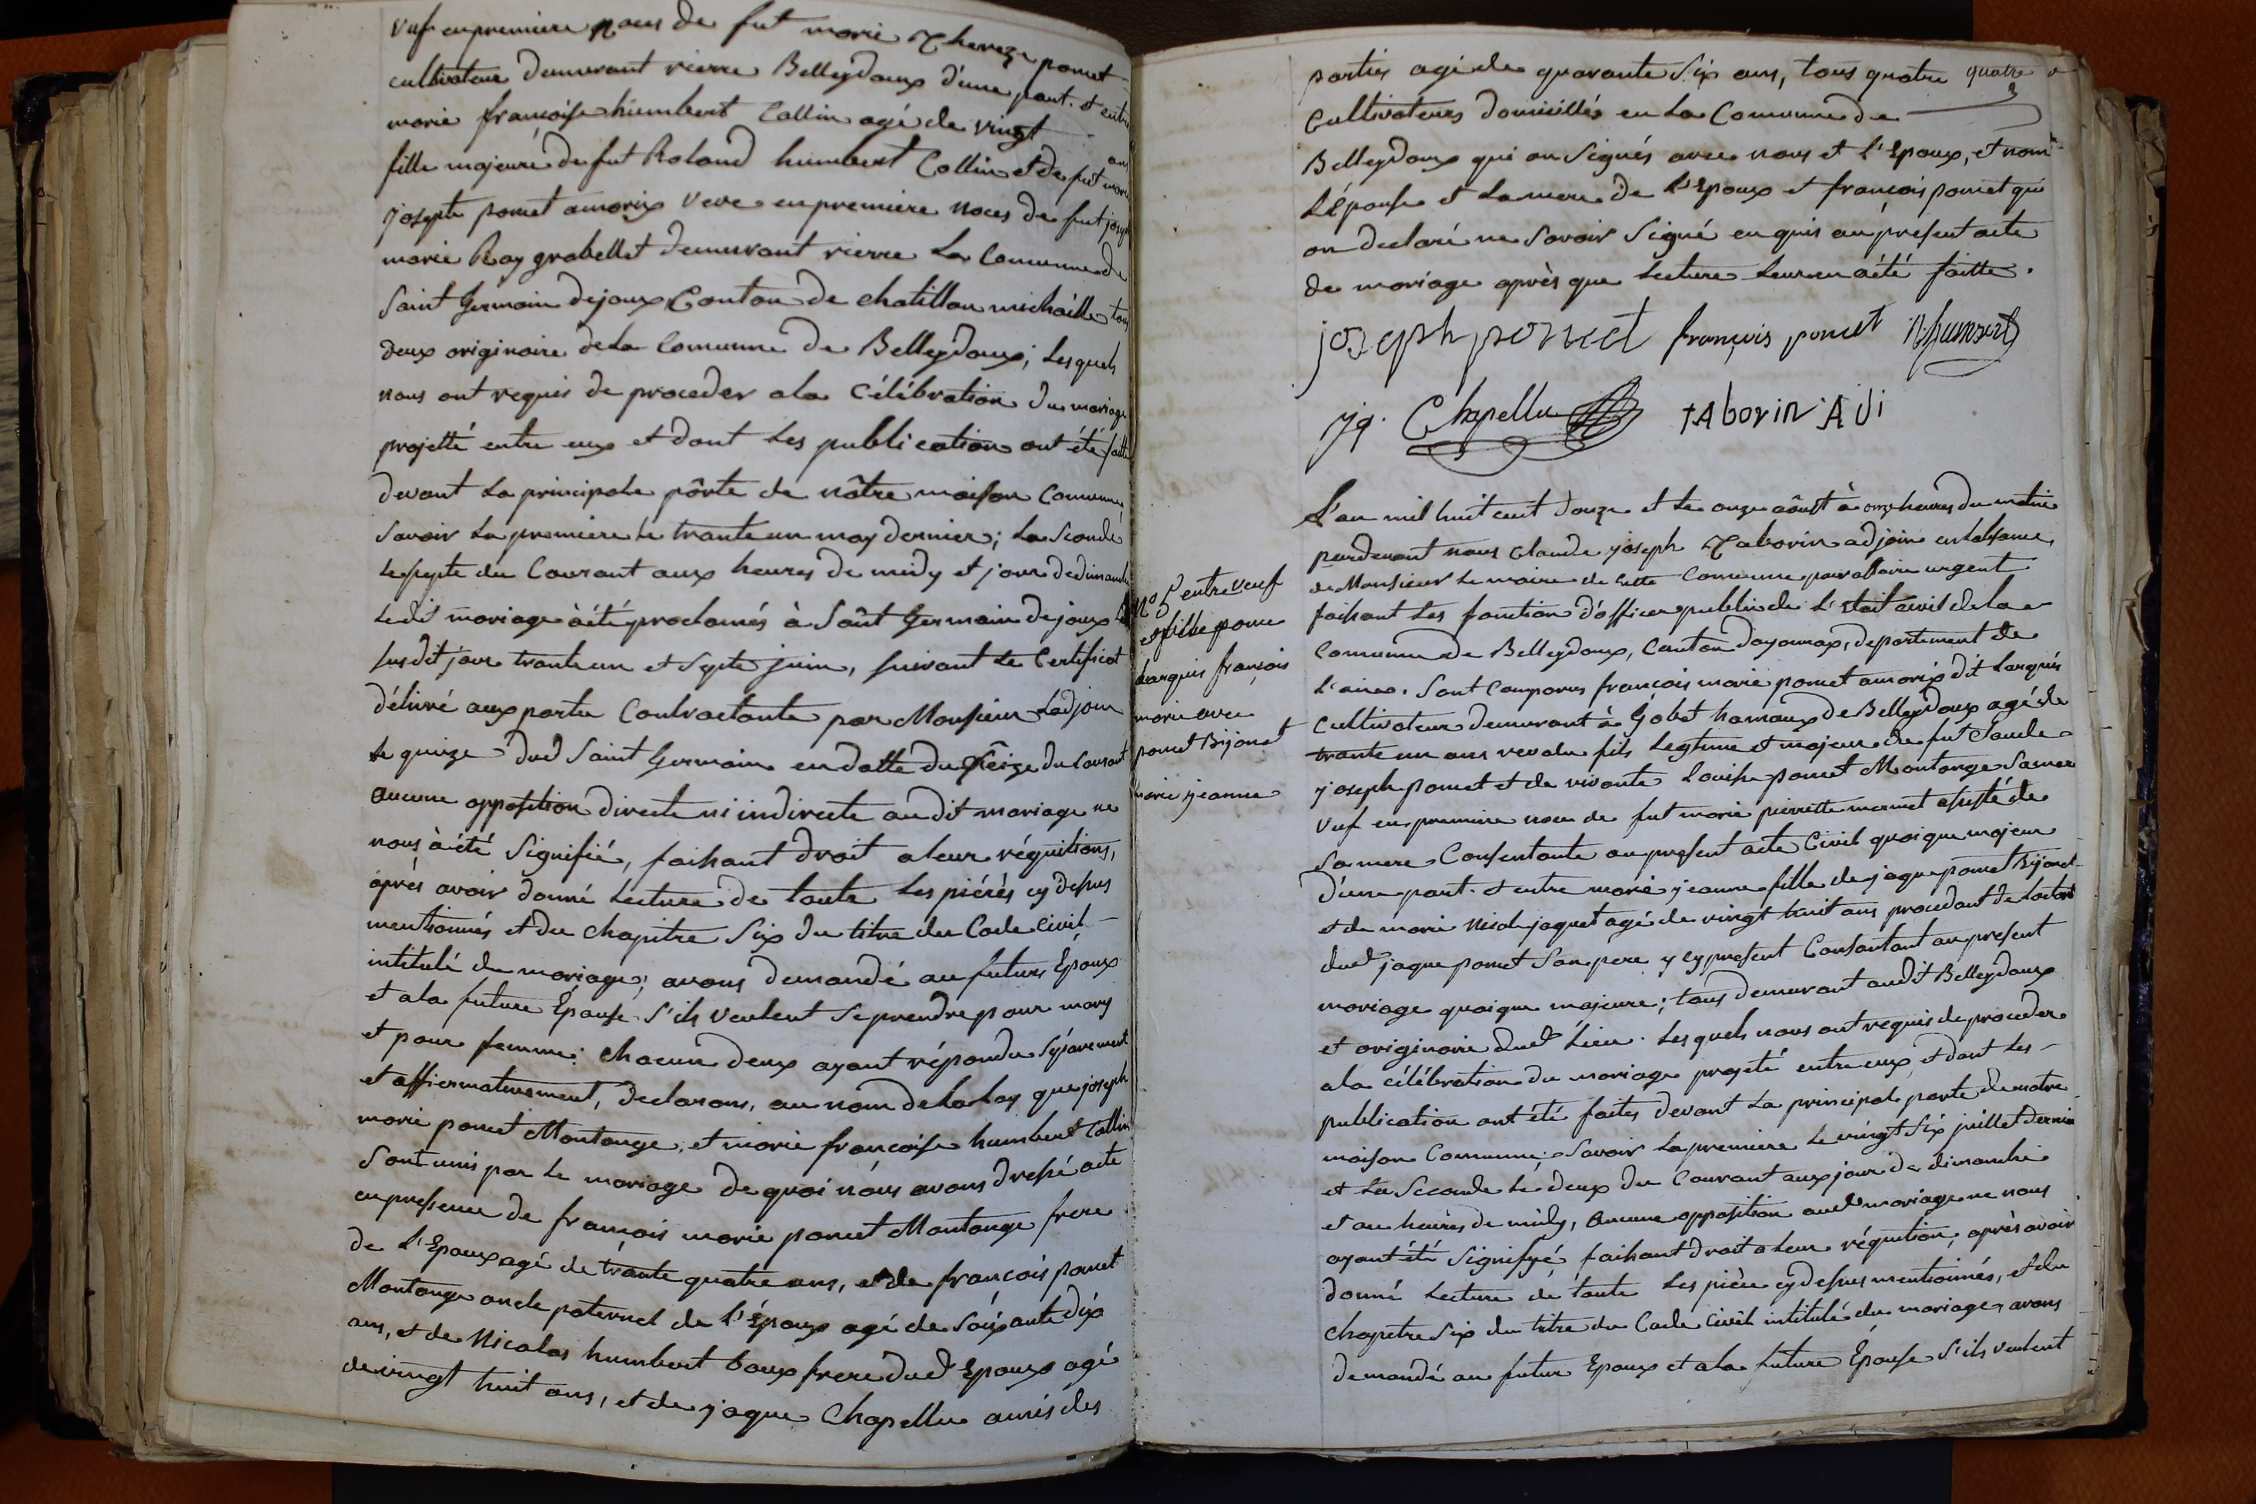 vuf en premiere noces de fut marie Thereze poncet
cultivateur demeurant rierre Belleydoux d'une part. et entre
marie françoise humbert Collin agé de vingt ans
fille majeure de fut Roland humbert Collin et de fut marie
joseph poncet amorix veve en premiere noces de fut joseph
marie Ray grobellet demeurant rierre La Commune de
Saint Germain dejoux Conton de chatillon michaille tous
deux originaire de La Comunne de Belleydoux; Lesquels
nous ont requis de proceder ala Célébration du mariage
projetté entre eux et dont Les publication ont été faitte
devant La principale pôrte de nôtre maison Commune,
Savoir La premiere Le trante un may dernier; La Seconde
Le septe du Courant aux heures de midy et jour de dimanche
Le dit mariage à été proclamés à Saint Germain de joux Le
susdit jour trante un et septe juin, suivant Le Certificat
délivré aux partie Contractante par Monsieur Ladjoin
Le quinze dud Saint Germain en datte du seize du Courant
aucune opposition directe ni indirecte au dit mariage ne
nous à été Signifié, faisant droit a leur réquitions,
après avoir donné Lecture de toute Les piérès cy dessus
mentionnés et du chapitre Six du titre du Code Civil
intitulé du mariage; avons demandé au futurs Époux
et ala future Épouse S'ils veulent Se prendre pour mary
et pour femme: chacun deux ayant répondu Séparement
et affiermativement, declarons, au nom de La Loy que joseph
marie poncet Montange, et marie françoise humbert Collin
Sont unis par Le mariage de quoi nous avons dressé acte
en presence de françois marie poncet Montange frere
de L'Epoux agé de trante quatre ans, et de françois poncet
Montange oncle paternel de L'Époux agé de Soixante dix
ans, et de Nicolas humbert baux frere dud Epoux agé
de vingt huit ans, et de jaque Chapellu amis des
parties agé de quarante Six ans, tous quatre quatre
Cultivateurs domicillés en La Comunne de
Belleydoux qui on Signés avec nous et L'Epoux, et nom
L'Épouse et La mere de L'Epoux et françois poncet qui
on declaré ne Savoir Signé enquis au present acte
de mariage après que Lecture Leur en a été faitte.
joseph poncet françois poncet N humbert
jq. Chapellu tAborin Adj
L'an mil huit cent douze et Le onze aôust à onze heures du matin
pardevant nous Claude joseph Taborin adjoin en labsance
de Monsieur Le maire de Cette Comunne pour affaire urgent
faisant Les fonction d'officier public de L'Etait Civil de La
Comunne de Belleydoux, Canton doyonnax, departement de
L'ain. Sont Comparus françois marie poncet amorix dit Larquis
Cultivateur demeurant à Gobet hamaux de Belleydoux agé de
trante un ans revolu fils Legtime et majeur de fut Claude
joseph poncet et de vivante Louise poncet Montange Sa mere
vuf en premiere noce de fut marie pierrette mermet assisté de
Sa mere Consentante au present acte Civil quoique majeur
d'une part. et entre marie jeanne fille de jaque poncet Bijonet
et de marie Nicole jaquet agé de vingt huit ans procedant de Lautorité
dud jaque poncet Son père y cy present Consantant au present
mariage quoique majeure; tous demeurant audit Belleydoux
et originaire dud Lieu. Lesquels nous ont requis de proceder
ala célébration du mariage projeté entre eux, et dont Les
publication ont été faites devant La principale porte de notre
maison Commune; Savoir La premiere Le vingt Six juillet dernier
et La Seconde Le deux du Courant aux jour de dimanche
et au heures de midy, Aucune opposition aud mariage ne nous
ayant été Signifyé, faisant droit a Leur réquition, après avoir
donné Lecture de toute Les pièce cy dessus mentionnés, et du
chapitre Six du titre du Code Civil intitulé du mariage, avons
demandé au futur Epoux et ala future Épouse S'ils veulent
No 5 entre veuf
et fille pour
Larquis françois
marie avec
poncet Bijonet
marie jeanne